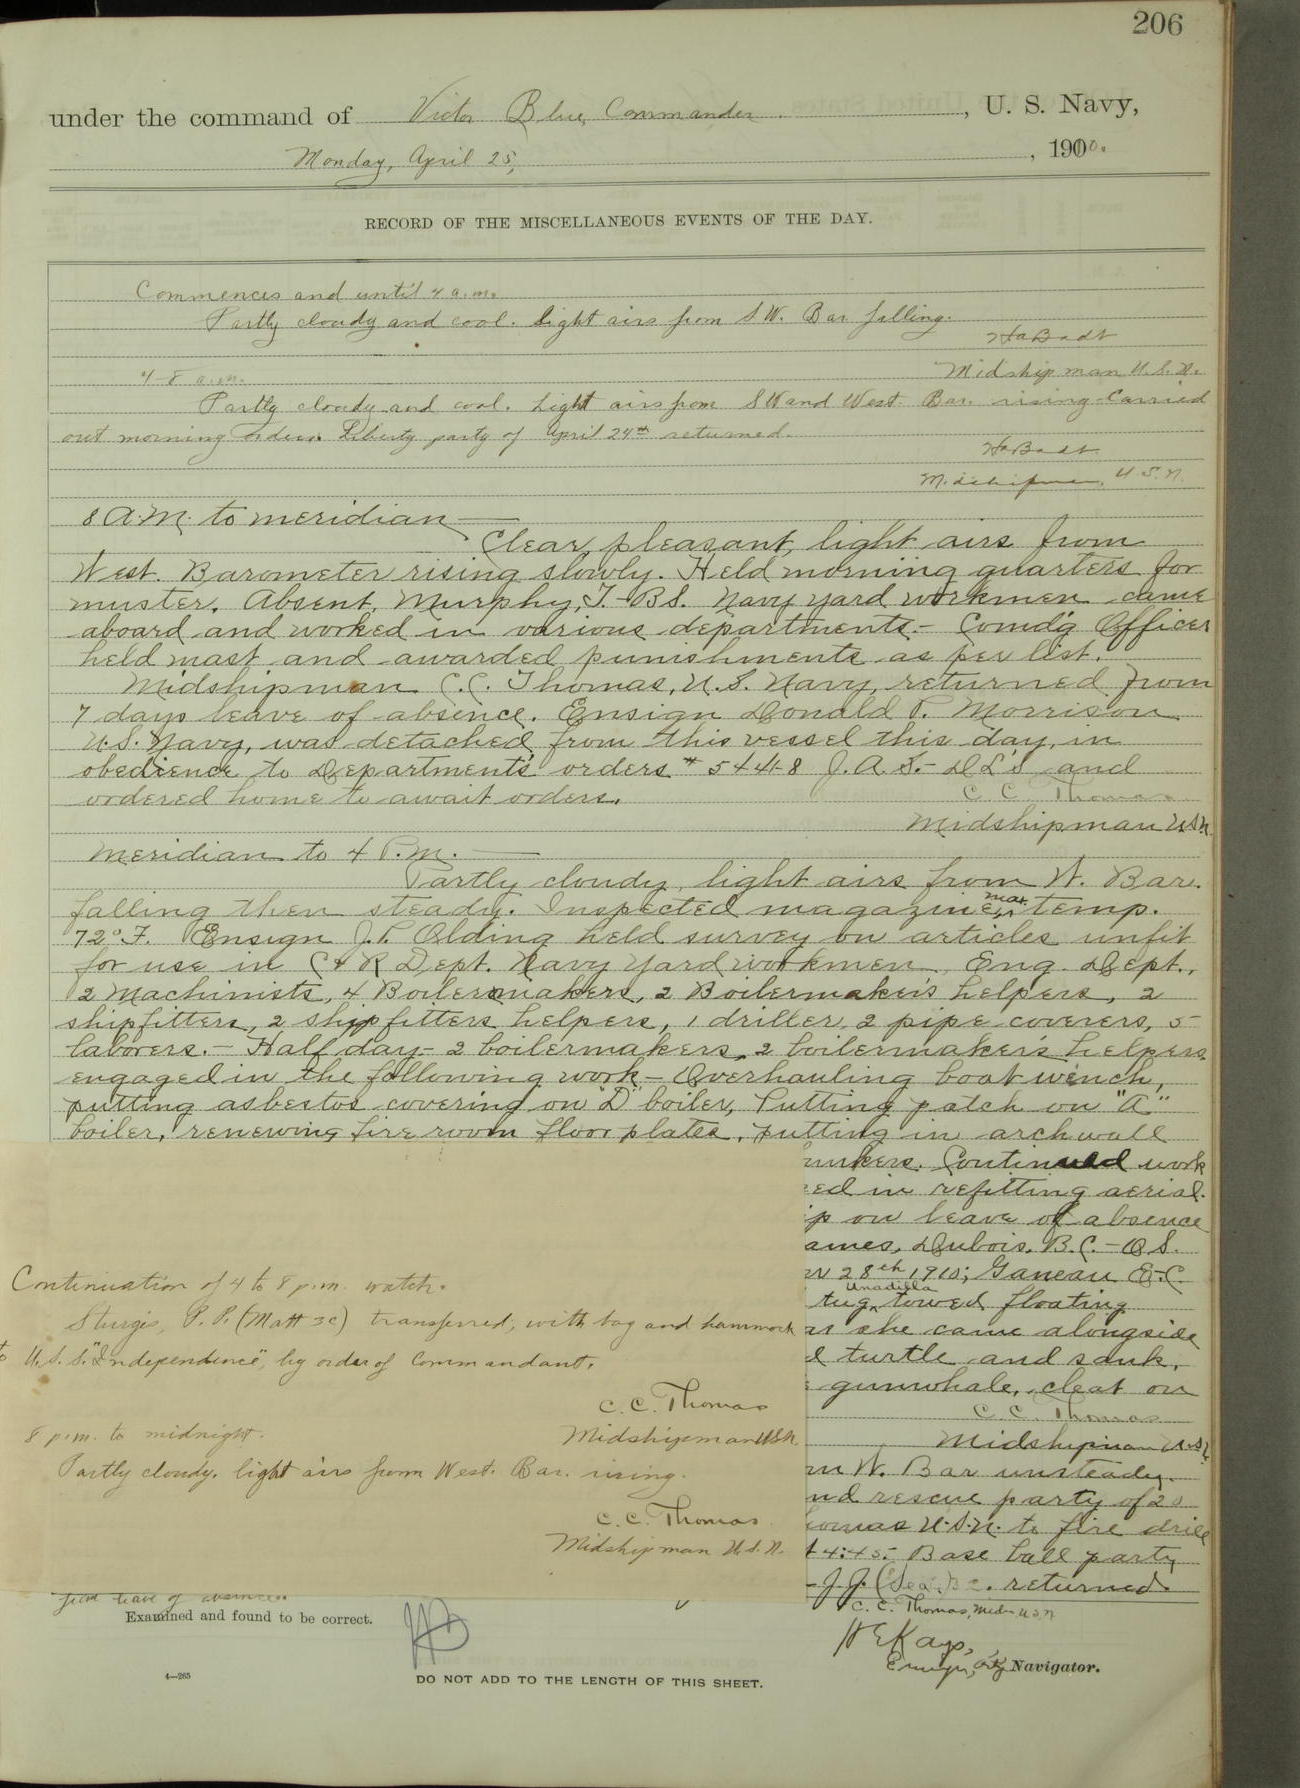 206
under the command of Victor Blue, Commander, U. S. Navy,
Monday, April 25, 1900.
RECORD OF THE MISCELLANEOUS EVENTS OF THE DAY.
Commences and until 4 a.m.
Partly cloudy and cool. Light airs from S.W. Bar. falling.
HaBadt
Midshipman U.S.N.
4-8 a.m.
Partly cloudy and cool. Light airs from SW and West. Bar. rising. Carried
out morning orders. Liberty party of April 24th returned.
HaBadt
Midshipman, U.S.N.
8 A.M. to meridian —
Clear, pleasant, light airs from
West. Barometer rising slowly. Held morning quarters for
muster. Absent, Murphy, T.-BS. Navy yard workmen came
aboard and worked in various departments.- Comd'g Officer
held mast and awarded punishments as per list.
Midshipman C.C. Thomas, U.S. Navy, returned from
7 days leave of absence. Ensign Donald P. Morrison
U.S. Navy, was detached from this vessel this day, in
obedience to Department's orders # 5441-8 J.A.S.- DL's and
ordered home to await orders.
C C Thomas
Midshipman USN.
Meridian to 4 P.M. —
Partly cloudy, light airs from W. Bar.
falling then steady. Inspected magazine, max. temp.
72° F. Ensign J.P. Olding held survey on articles unfit
for use in C & R Dept. Navy Yard workmen, Eng. Dept.,
2 Machinists, 4 Boilermakers, 2 Boilermaker's helpers, 2
shipfitters, 2 shipfitters helpers, 1 driller, 2 pipe coverers, 5
laborers. - Half day - 2 boilermakers, 2 boilermaker's helpers
engaged in the following work - Overhauling boat winch,
putting asbestos covering on "D" boiler, Putting patch on "A"
boiler, renewing fire room floor plates, putting in arch wall
unkers. Continued work
ed in refitting aerial.
ip on leave of absence
ames, Dubois, B.C.- OS.
28th 1910; Ganeau E.C.
tug Unadilla towed floating
as she came alongside
turtle and sank.
gunwhale, cleat on
C. C. Thomas
Midshipman U.S.N.
m W. Bar unsteady.
nd rescue party of 20
homas U.S.N. to fire drill
t 4:45. Base ball party
- J.J. (Sea.) returned
Continuation of 4 to 8 p.m. watch.
Sturgis, P. P. (Matt 3c) transferred, with bag and hammock
to U.S.S. "Independence", by order of Commandant.
C. C. Thomas
Midshipman USN
8 p.m. to midnight.
Partly cloudy. light airs from West. Bar. rising.
C. C. Thomas
Midshipman U.S.N.
from leave of absence.
C. C. Thomas, Mid. U.S.N
Examined and found to be correct.
H E Kays,
Ensign, Navigator.
4—265
DO NOT ADD TO THE LENGTH OF THIS SHEET.